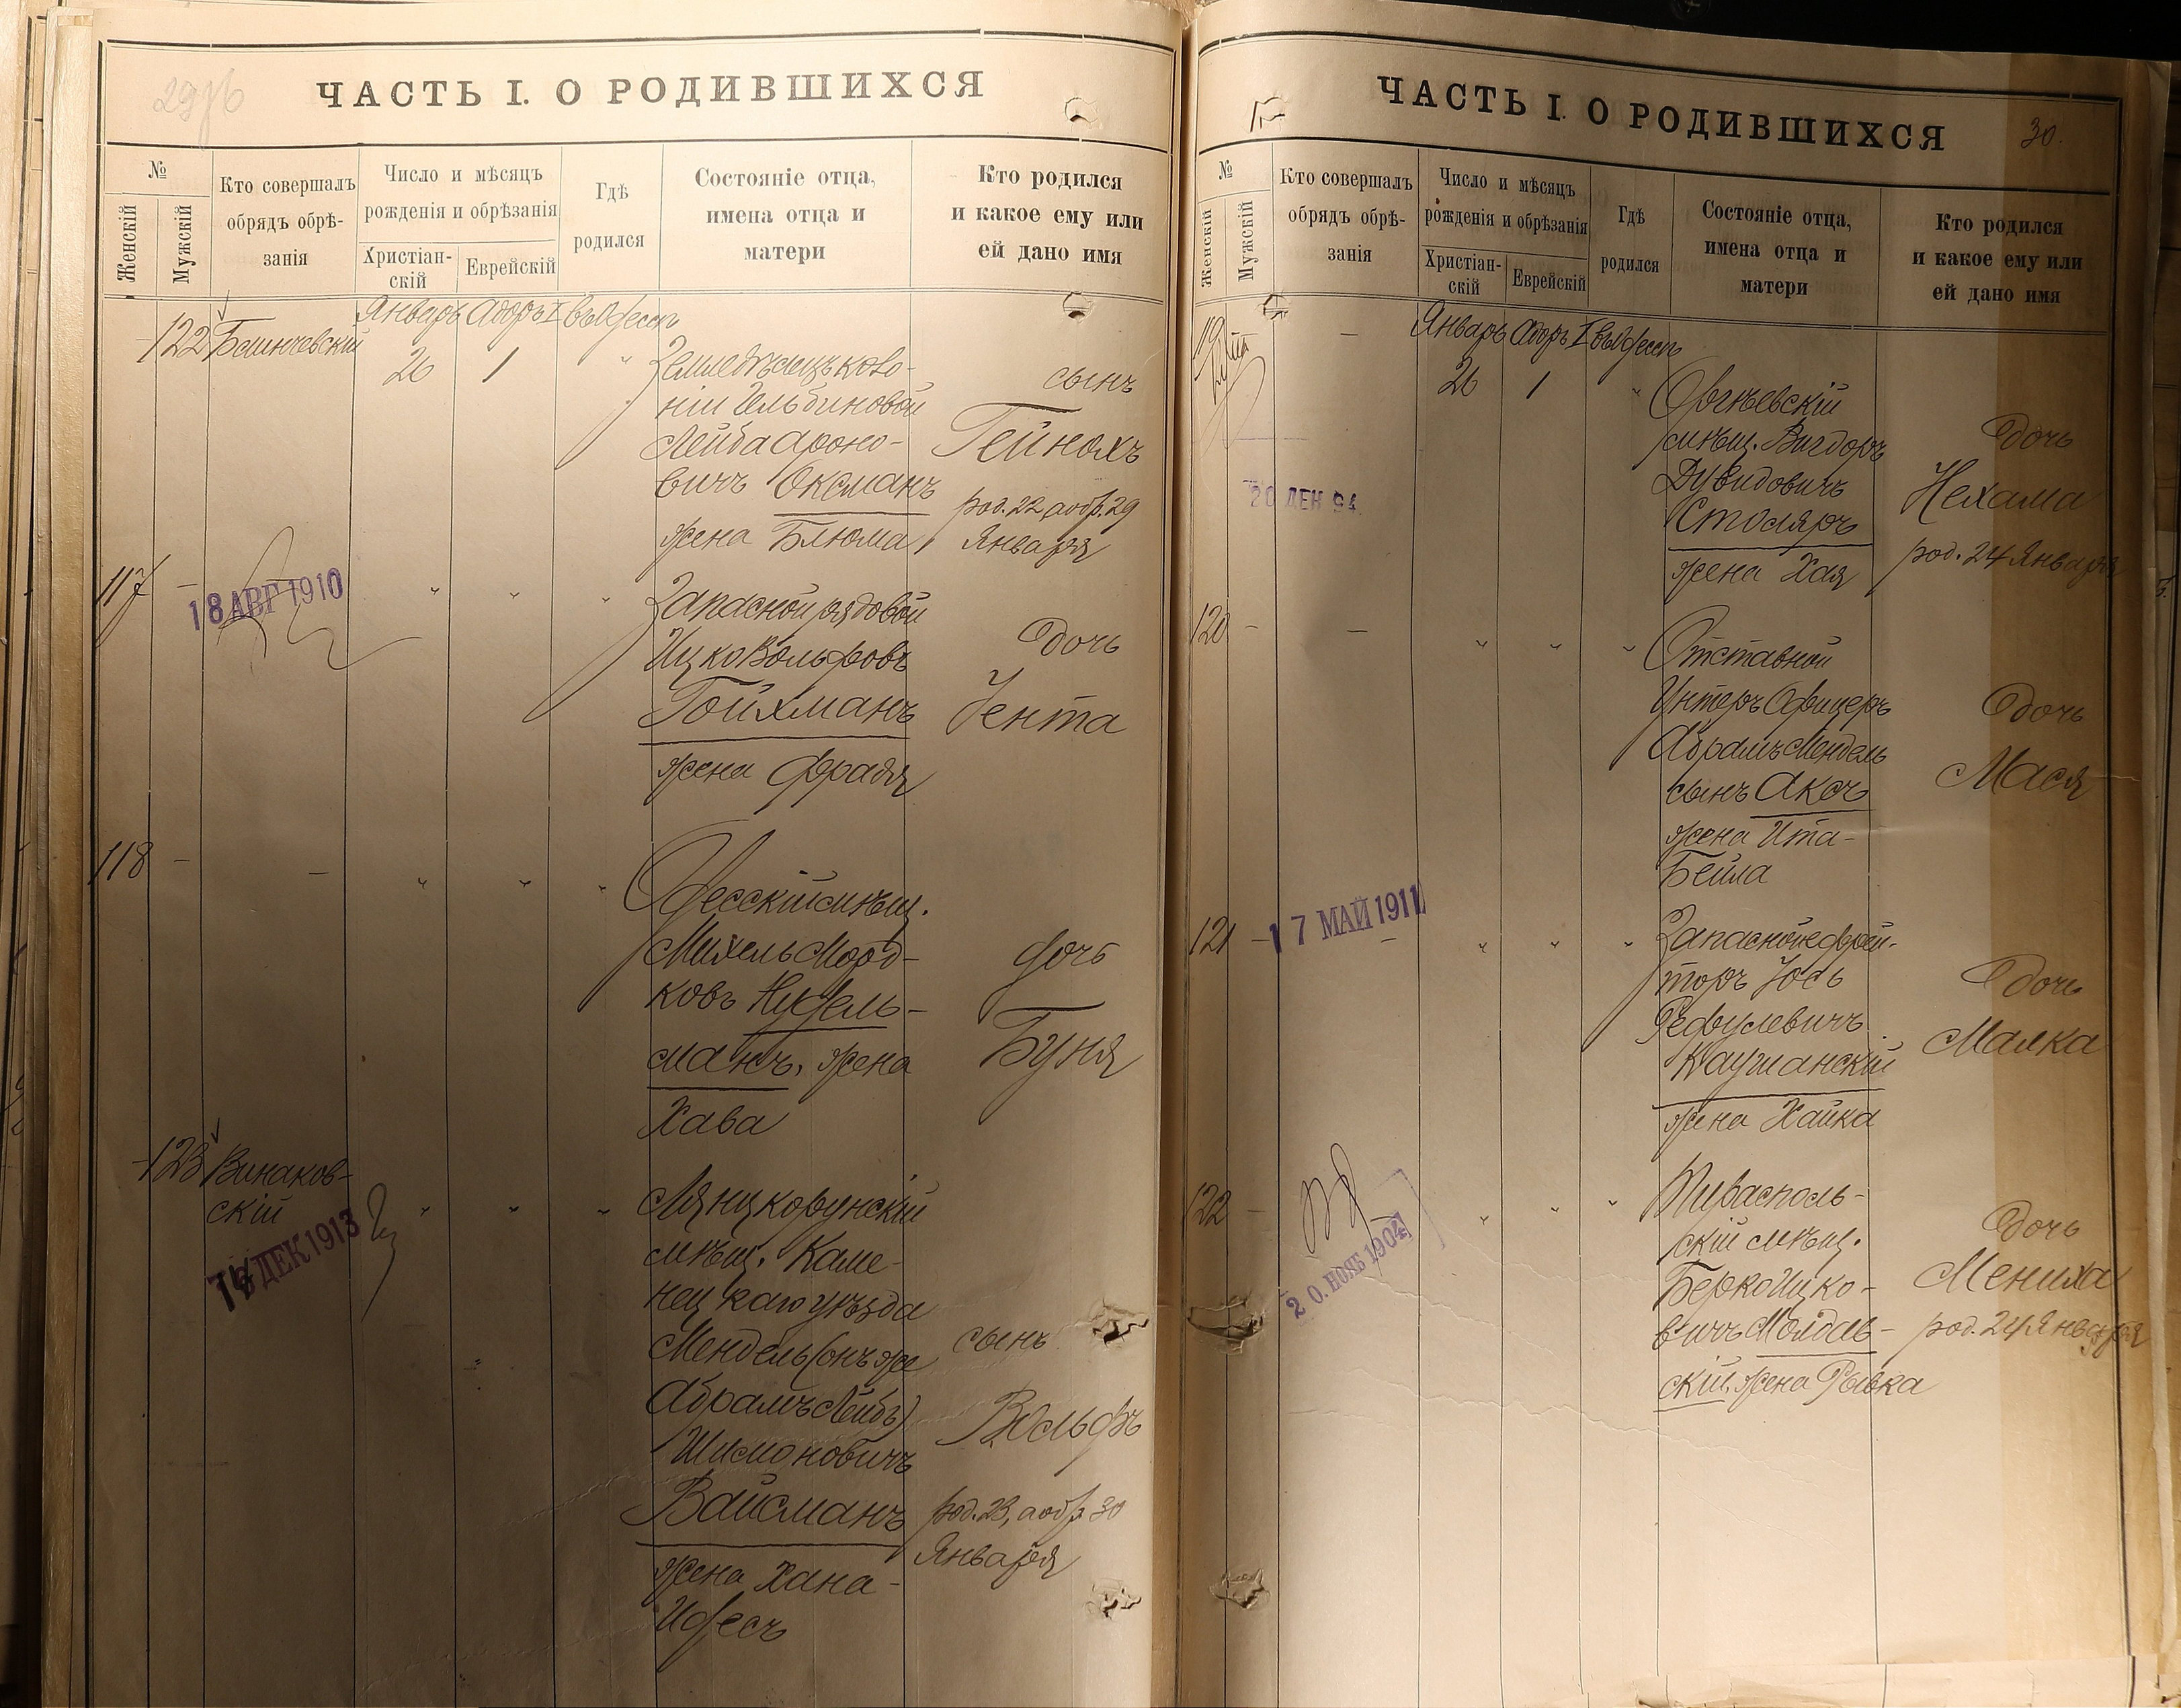 29об
ЧАСТЬ I. О РОДИВШИХСЯ
№
Женскій
Мужскій
Кто совершалъ
обрядъ обрѣ-
занія
Число и мѣсяцъ
рожденія и обрѣзанія
Христіан-
скій
Еврейскій
Гдѣ
родился
Состояніе отца,
имена отца и
матери
Кто родился
и какое ему или
ей дано имя
Январь Адоръ I въ Одессѣ
122
26 1 "
Земледѣлецъ коло-
ніи
Лейба Ароно-
вичъ Оксманъ
жена Блюма
сынъ
Гейнохъ
род. 22, а обр. 29
Января
117 -
18 АВГ 1910
" " "
Запасной рядовой
Ицко Вольфовъ
Гойхманъ
жена Фрадя
дочь
Іента
118 -
— " " "
Одесскій мѣщ.
Михель Морд-
ковъ Нудель-
манъ, жена
Хава
дочь
Буня
-123 Винаков-
скій
ДЕК 1913
" " "
Лянцкорунскій
мѣщ. Каме-
нецкаго уѣзда
Мендель (онъ же
Абрамъ Лейбъ)
Шимоновичъ
Вайсманъ
жена Хана-
Идесъ
сынъ
Вольфъ
род. 23, а обр. 30
Января
30.
ЧАСТЬ I. О РОДИВШИХСЯ
№
Женскій
Мужскій
Кто совершалъ
обрядъ обрѣ-
занія
Число и мѣсяцъ
рожденія и обрѣзанія
Христіан-
скій
Еврейскій
Гдѣ
родился
Состояніе отца,
имена отца и
матери
Кто родился
и какое ему или
ей дано имя
Январь Адоръ I въ Одессѣ
119
—
26 1 "
20 ДЕК 94
Оргѣевскій
мѣщ. Вигдоръ
Дувидовичъ
Столяръ
жена Хая
дочь
Нехама
род. 24 Января
120 -
— " " "
Отставной
Унтеръ Офицеръ
Абрамъ Мендель
сынъ Аксъ
жена Ита-
Бейла
дочь
Мася
121 -
17 МАЙ 1911
— " " "
Запасной ефрей-
торъ Іось
Рефулевичъ
Каушанскій
жена Хайка
дочь
Малка
122 -
20. НОЯБ 1904
" " "
Тирасполь-
скій мѣщ.
Берко Ицко-
вичъ Молдав-
скій, жена Рывка
дочь
Мениха
род. 24 Января